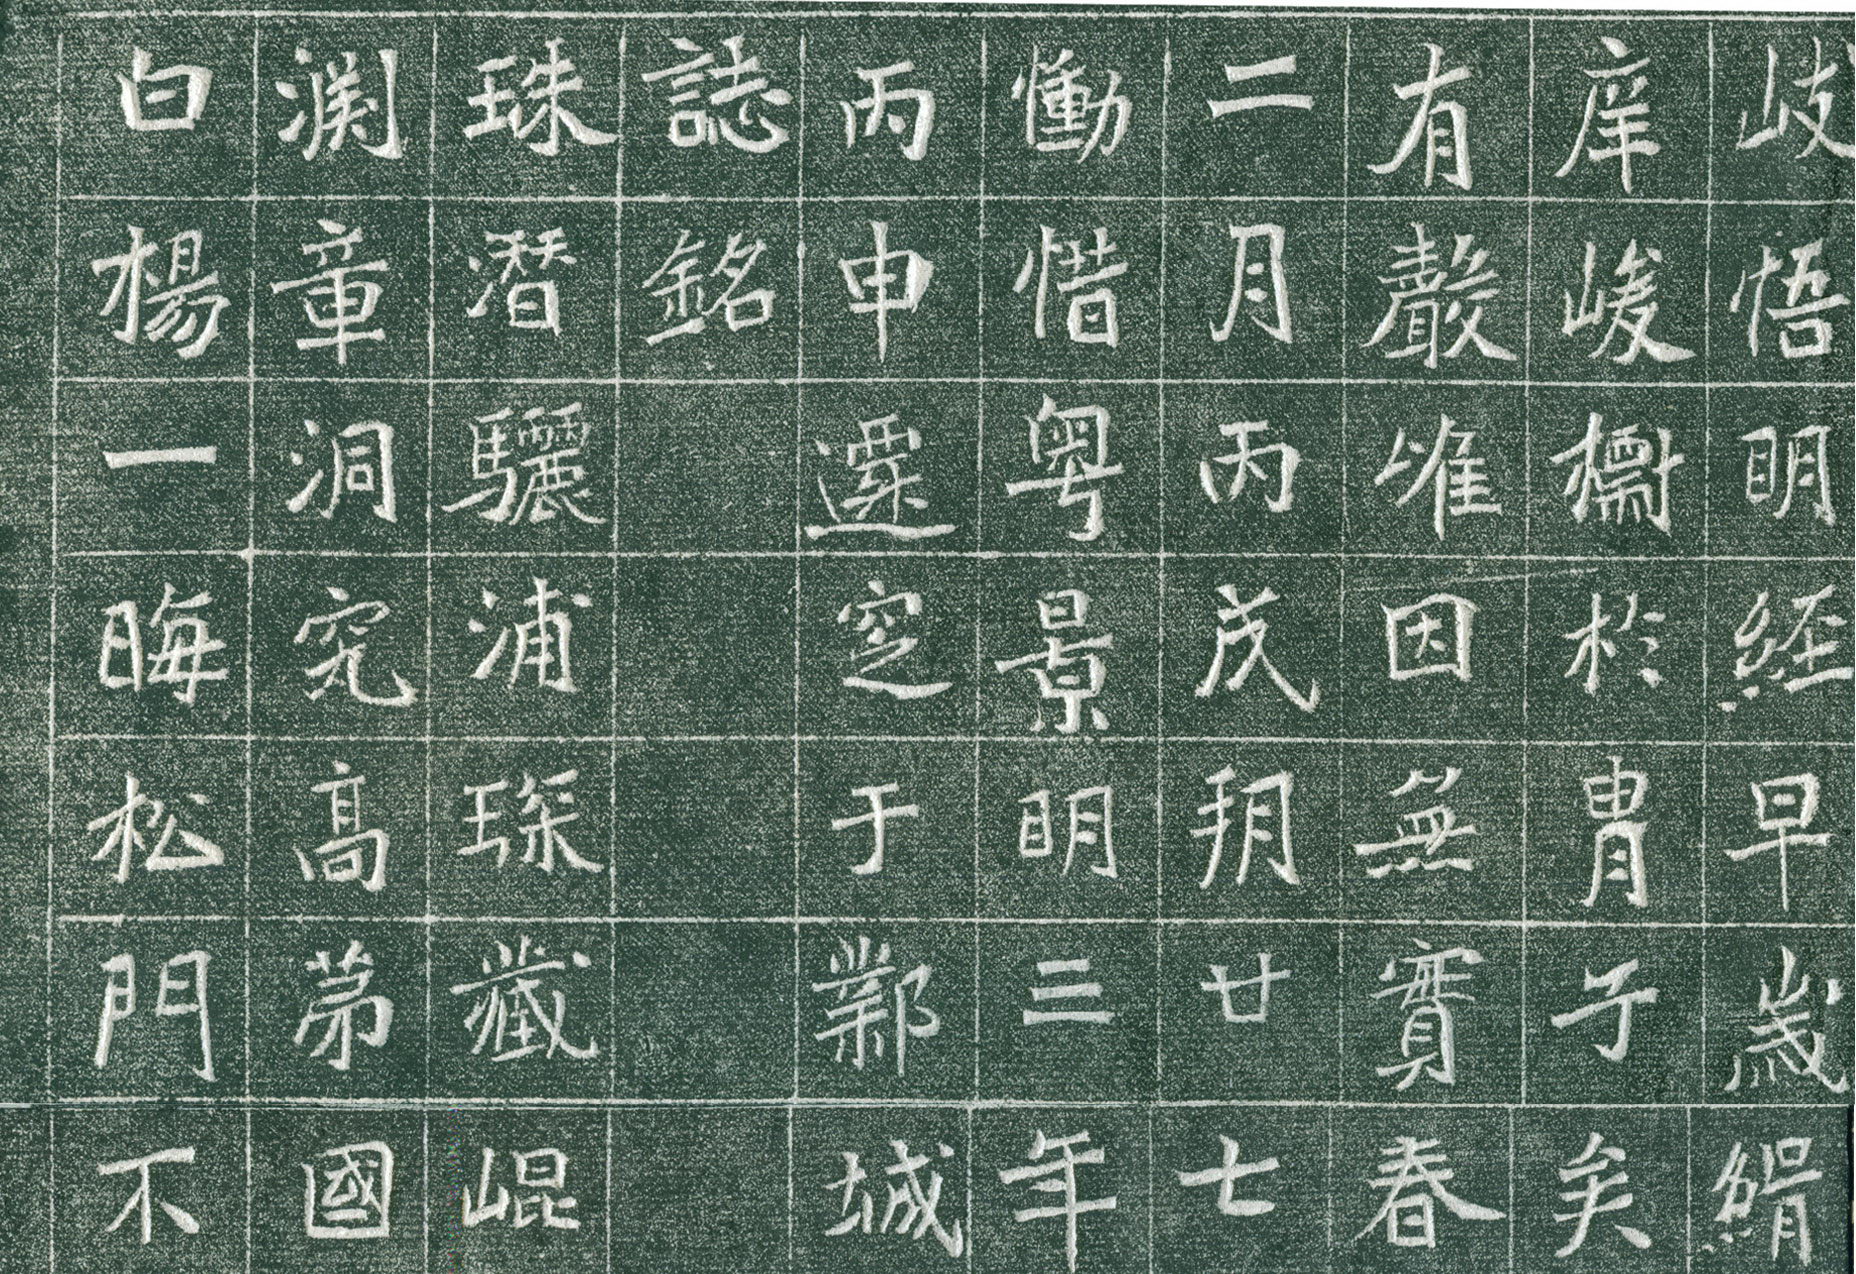 岐悟明經早歲
庠峻於胄子矣
有嚴唯因無賓春
二月丙戌朔廿七
慟惜粵景明三年
丙申遷窆于鄴城
誌銘
珠潛驪浦琛藏崐
渕章洞究高第國
白楊一晦松門不